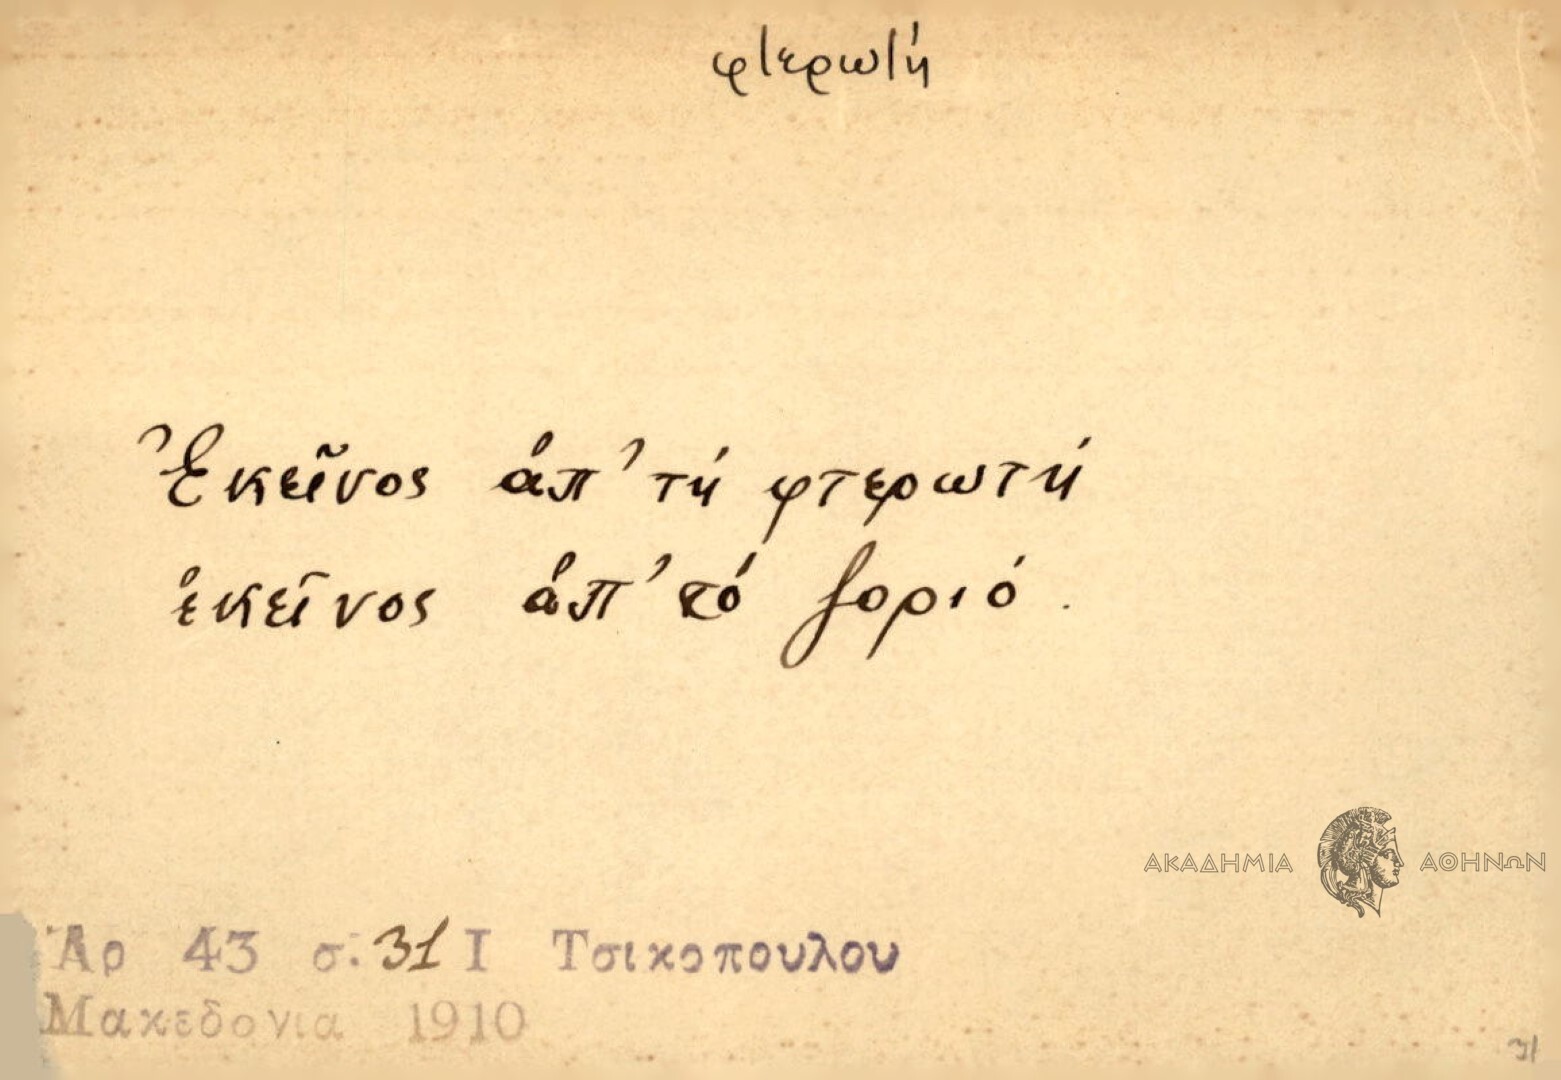 φτερωτή
Ἐκεῖνος ἀπ' τή φτερωτή
ἐκεῖνος ἀπ' τό βοριό.
ΑΚΑΔΗΜΙΑ ΑΘΗΝΩΝ
Ἀρ 43 σ. 31 Ι Τσικοπουλου
Μακεδονια 1910